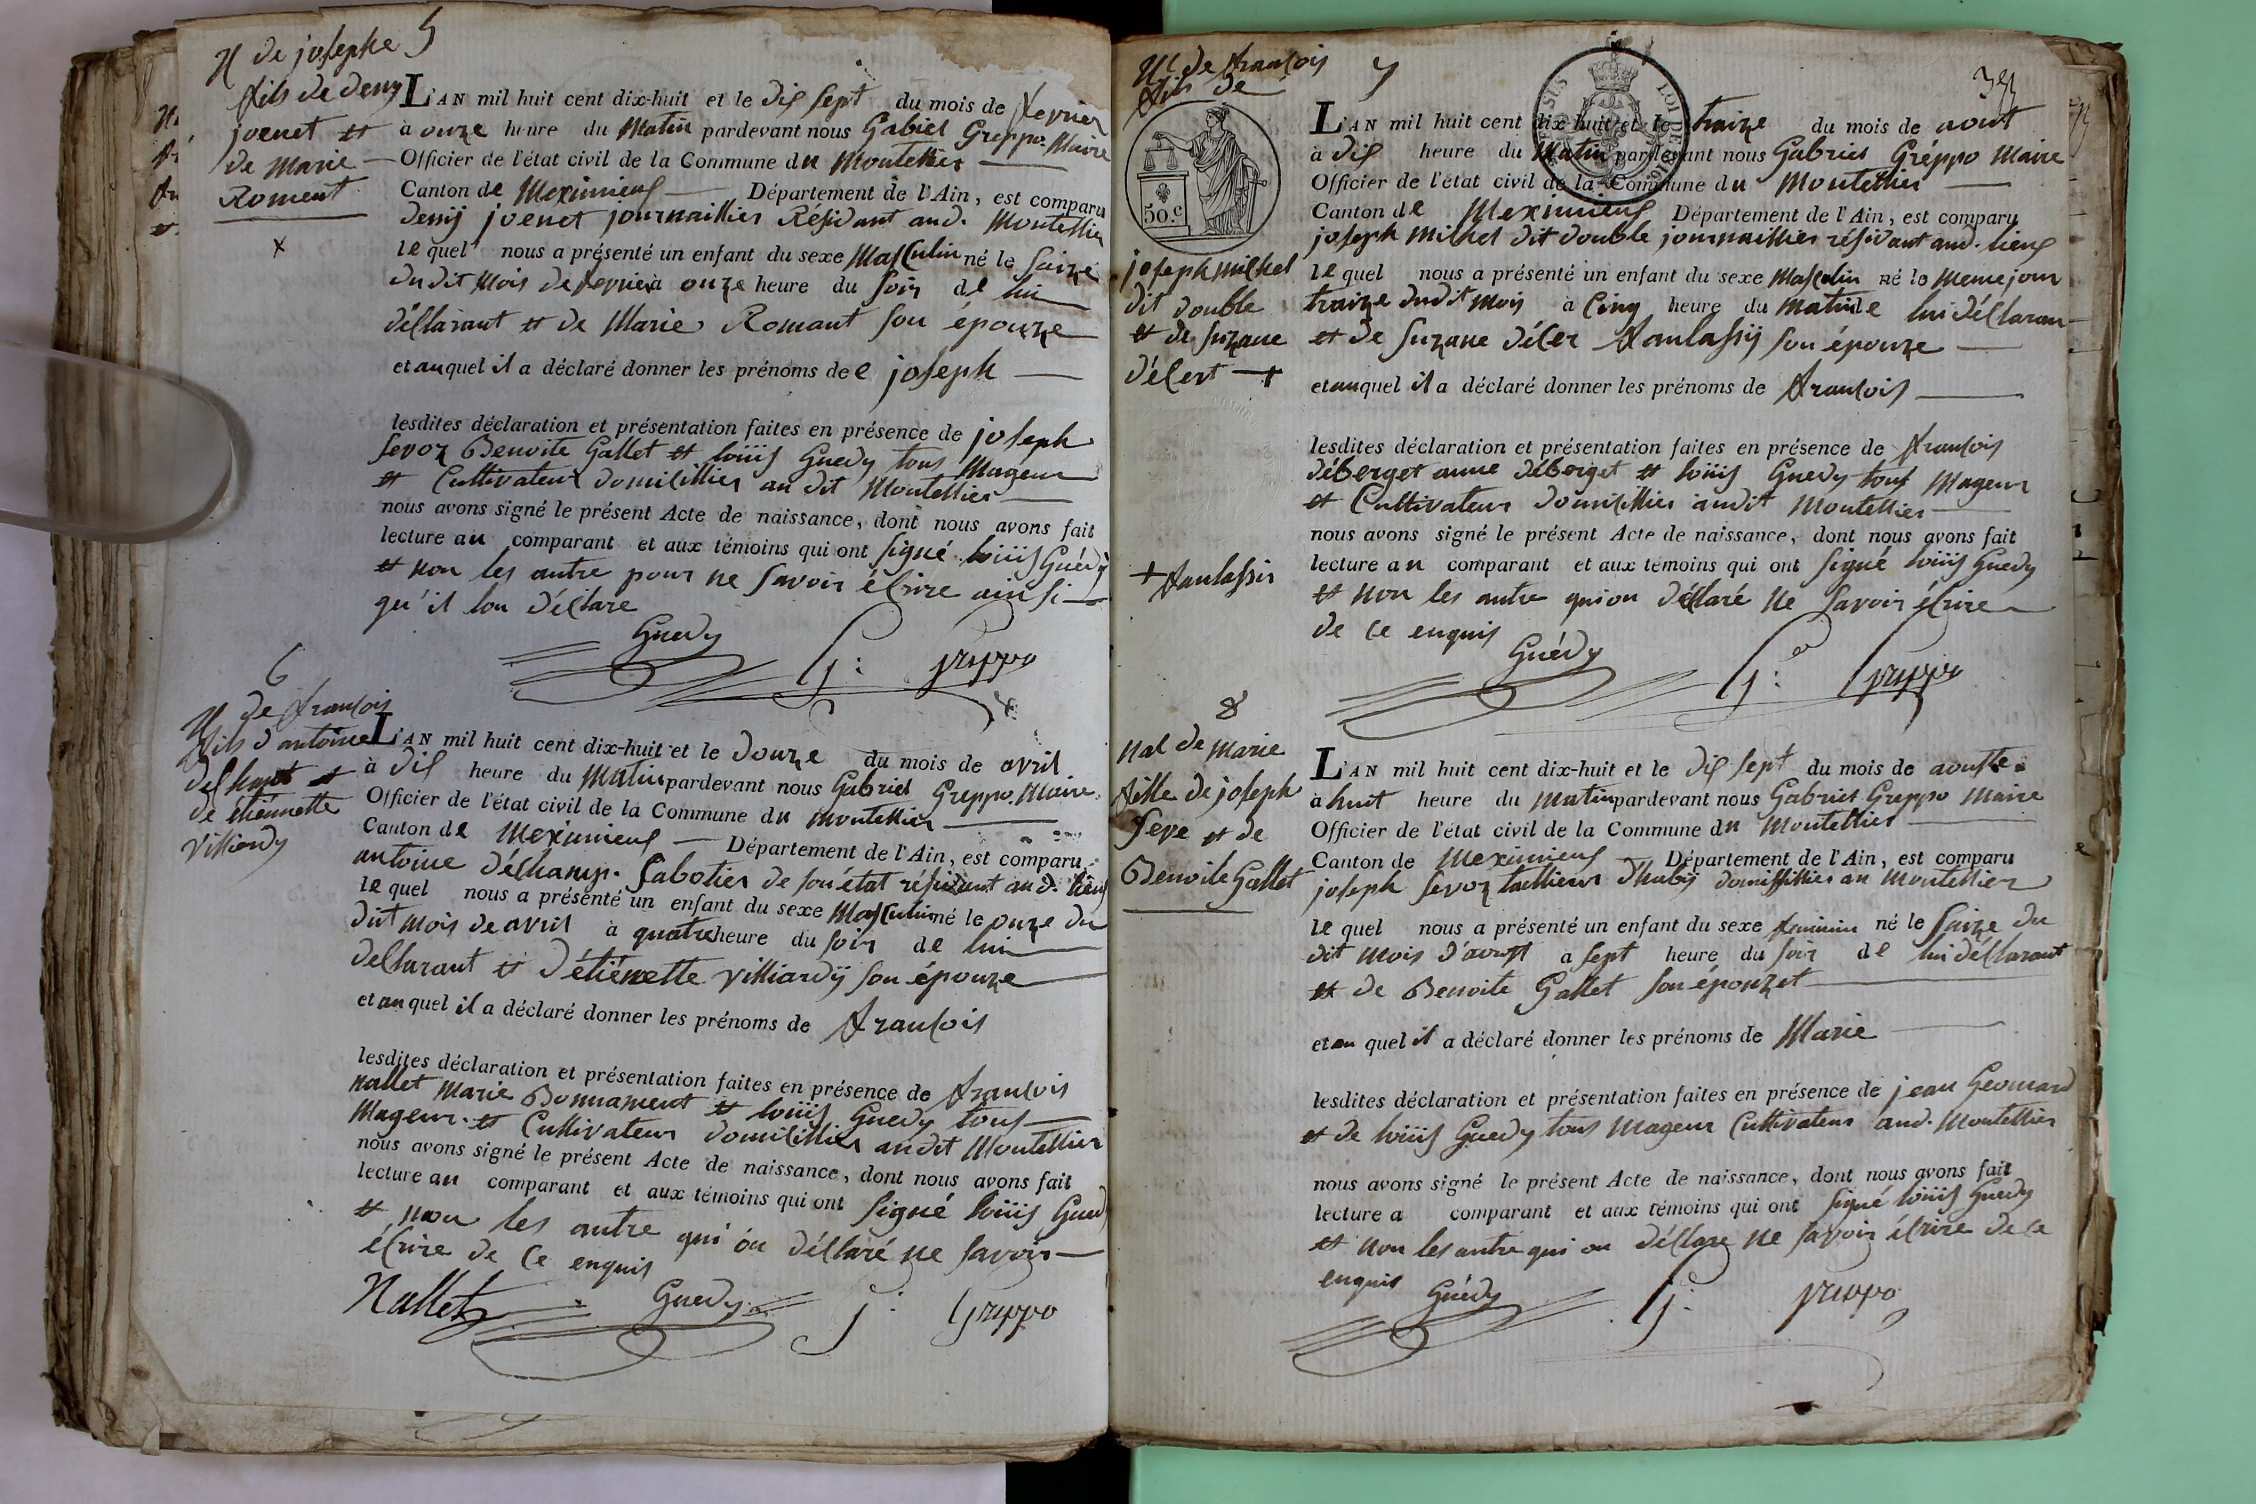 N de josephe 5
fils de deny
joenet et
de Marie
Roment
L'AN mil huit cent dix-huit et le dix sept du mois de fevrier
à onze heure du Matin pardevant nous Gabriel Greppo Maire
Officier de l'état civil de la Commune du Montellier
Canton de Meximieux Département de l'Ain, est comparu
denij joenet journaillier Résidant aud. Montellier
le quel nous a présenté un enfant du sexe Masculin né le saize
du dit Mois de fevrier à onze heure du soir de lui
déclarant et de Marie Romant son épouze
et au quel il a déclaré donner les prénoms de e joseph
lesdites déclaration et présentation faites en présence de joseph
sevoz Benoite Gallet et loüis Guedy tous Mageur
et Cultivateur domicillier au dit Montellier
nous avons signé le présent Acte de naissance, dont nous avons fait
lecture au comparant et aux témoins qui ont signé loüis Guédy
et non les autre pour ne savoir écrire ainsi
qu'il lon déclare
Guedy G: greppo
6
N de francois
fils d'antoine
deChant et
de étiennette
Villiardy
L'AN mil huit cent dix-huit et le douze du mois de avril
à dix heure du Matin pardevant nous Gabriel Greppo Maire
Officier de l'état civil de la Commune du Montellier
Canton de Meximieux Département de l'Ain, est comparu
antoine déchamp. sabotier de son état résidant aud. lieux
le quel nous a présenté un enfant du sexe Masculin né le onze du
dit mois de avril à quatre heure du soir de lui
declarant et d'étiénette Villiardÿ son épouze
et au quel il a déclaré donner les prénoms de francois
lesdites déclaration et présentation faites en présence de francois
nallet Marie Bonnament et loüis Guedy tous
Mageur et Cultivateur domicillier audit Montellier
nous avons signé le présent Acte de naissance, dont nous avons fait
lecture au comparant et aux témoins qui ont signé loüis Guedy
et non les autre qui on déclaré ne savoir
écrire de ce enquis
Nallet Guedy G: Greppo
Nl de francois 7
fils de
50.c
joseph michel
dit double
et de suzane
déCert +
+ fanlassir
L'AN mil huit cent dix-huit et le traize du mois de aout
à dix heure du Matin pardevant nous Gabriel Gréppo Maire
Officier de l'état civil de la Commune du Montellier
Canton de Meximieux Département de l'Ain, est comparu
joseph michel dit double journaillier résidant aud. lieux
le quel nous a présenté un enfant du sexe Masculin né le Meme jour
traize dudit mois à Cinq heure du matin de lui déclaran
et de suzane déCer fanlassij son épouze
et au quel il a déclaré donner les prénoms de francois
lesdites déclaration et présentation faites en présence de francois
déberget anne déberget et loüis Guedy tous Mageur
et Cultivateur domicillier audit Montellier
nous avons signé le présent Acte de naissance, dont nous avons fait
lecture au comparant et aux témoins qui ont signé loüis Guedy
et non les autre qui on déclaré ne savoir écrire
de ce enquis
Guédy G: Greppo
8
Nal de Marie
fille de joseph
seve et de
Benoite Gallet
L'AN mil huit cent dix-huit et le dix sept du mois de aouste
à huit heure du Matin pardevant nous Gabriel Greppo Maire
Officier de l'état civil de la Commune du Montellier
Canton de Meximieux Département de l'Ain, est comparu
joseph sevoz taillieur d'habij domissillier au Montellier
le quel nous a présenté un enfant du sexe feminin né le saize du
dit mois d'aoust a sept heure du soir de lui déclarant
et de Benoite Gallet son épouzet
et au quel il a déclaré donner les prénoms de Marie
lesdites déclaration et présentation faites en présence de jean Geomard
et de loüis Guedy tous Mageur Cultivateur aud. Montellier
nous avons signé le présent Acte de naissance, dont nous avons fait
lecture a comparant et aux témoins qui ont signé loüis Guedy
et non les autre qui on déclare ne savoir écrire de ce
enquis
Guédy G: greppo